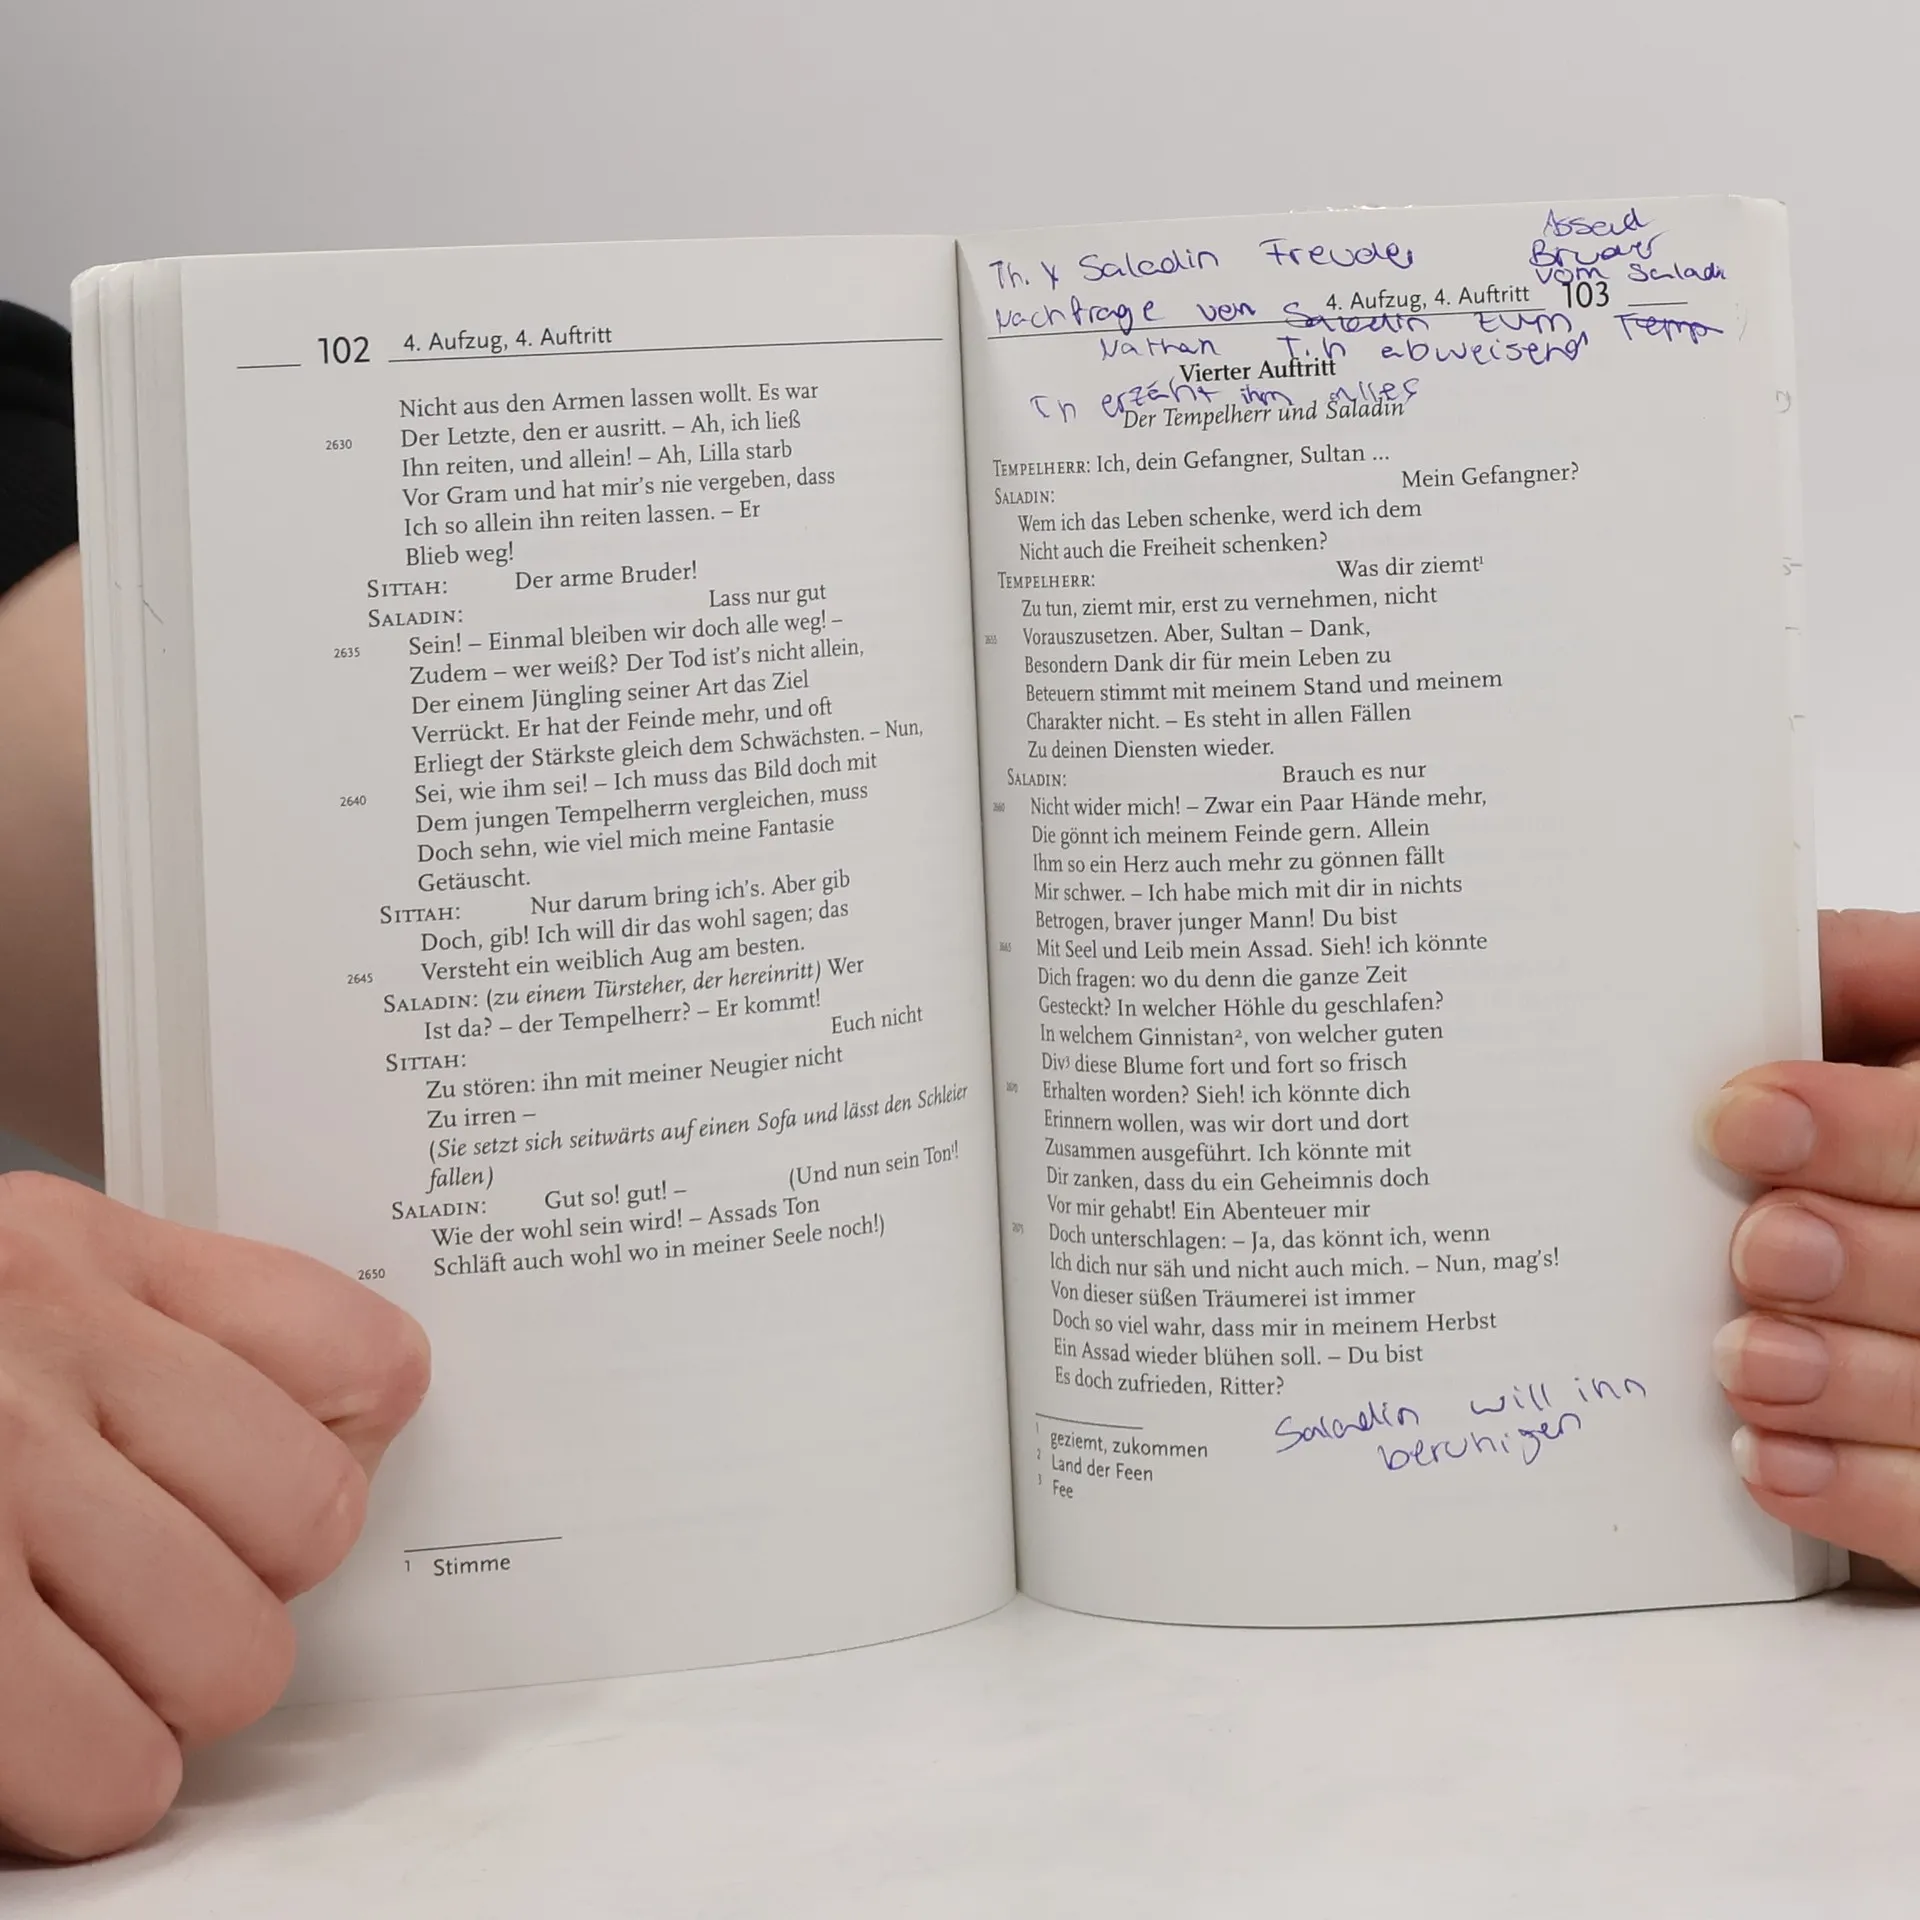 102 4. Aufzug, 4. Auftritt
Nicht aus den Armen lassen wollt. Es war
2630 Der Letzte, den er ausritt. – Ah, ich ließ
Ihn reiten, und allein! – Ah, Lilla starb
Vor Gram und hat mir's nie vergeben, dass
Ich so allein ihn reiten lassen. – Er
Blieb weg!
SITTAH: Der arme Bruder!
SALADIN: Lass nur gut
2635 Sein! – Einmal bleiben wir doch alle weg! –
Zudem – wer weiß? Der Tod ist's nicht allein,
Der einem Jüngling seiner Art das Ziel
Verrückt. Er hat der Feinde mehr, und oft
Erliegt der Stärkste gleich dem Schwächsten. – Nun,
2640 Sei, wie ihm sei! – Ich muss das Bild doch mit
Dem jungen Tempelherrn vergleichen, muss
Doch sehn, wie viel mich meine Fantasie
Getäuscht.
SITTAH: Nur darum bring ich's. Aber gib
Doch, gib! Ich will dir das wohl sagen; das
2645 Versteht ein weiblich Aug am besten.
SALADIN: (zu einem Türsteher, der hereinritt) Wer
Ist da? – der Tempelherr? – Er kommt!
SITTAH: Euch nicht
Zu stören: ihn mit meiner Neugier nicht
Zu irren –
(Sie setzt sich seitwärts auf einen Sofa und lässt den Schleier
fallen)
SALADIN: Gut so! gut! – (Und nun sein Ton¹!
Wie der wohl sein wird! – Assads Ton
2650 Schläft auch wohl wo in meiner Seele noch!)
1 Stimme
Assad
Bruder
vom Saladi
Th. x Saladin Freude
Nachfrage von Saladin zum Temp
4. Aufzug, 4. Auftritt 103
Nathan T.h abweisend
Vierter Auftritt
Th erzäht ihm alles
Der Tempelherr und Saladin
TEMPELHERR: Ich, dein Gefangner, Sultan ...
SALADIN: Mein Gefangner?
Wem ich das Leben schenke, werd ich dem
Nicht auch die Freiheit schenken?
TEMPELHERR: Was dir ziemt¹
Zu tun, ziemt mir, erst zu vernehmen, nicht
2655 Vorauszusetzen. Aber, Sultan – Dank,
Besondern Dank dir für mein Leben zu
Beteuern stimmt mit meinem Stand und meinem
Charakter nicht. – Es steht in allen Fällen
Zu deinen Diensten wieder.
SALADIN: Brauch es nur
2660 Nicht wider mich! – Zwar ein Paar Hände mehr,
Die gönnt ich meinem Feinde gern. Allein
Ihm so ein Herz auch mehr zu gönnen fällt
Mir schwer. – Ich habe mich mit dir in nichts
Betrogen, braver junger Mann! Du bist
2665 Mit Seel und Leib mein Assad. Sieh! ich könnte
Dich fragen: wo du denn die ganze Zeit
Gesteckt? In welcher Höhle du geschlafen?
In welchem Ginnistan², von welcher guten
Div³ diese Blume fort und fort so frisch
2670 Erhalten worden? Sieh! ich könnte dich
Erinnern wollen, was wir dort und dort
Zusammen ausgeführt. Ich könnte mit
Dir zanken, dass du ein Geheimnis doch
Vor mir gehabt! Ein Abenteuer mir
2675 Doch unterschlagen: – Ja, das könnt ich, wenn
Ich dich nur säh und nicht auch mich. – Nun, mag's!
Von dieser süßen Träumerei ist immer
Doch so viel wahr, dass mir in meinem Herbst
Ein Assad wieder blühen soll. – Du bist
Es doch zufrieden, Ritter?
Saladin will ihn
beruhigen
1 geziemt, zukommen
2 Land der Feen
3 Fee